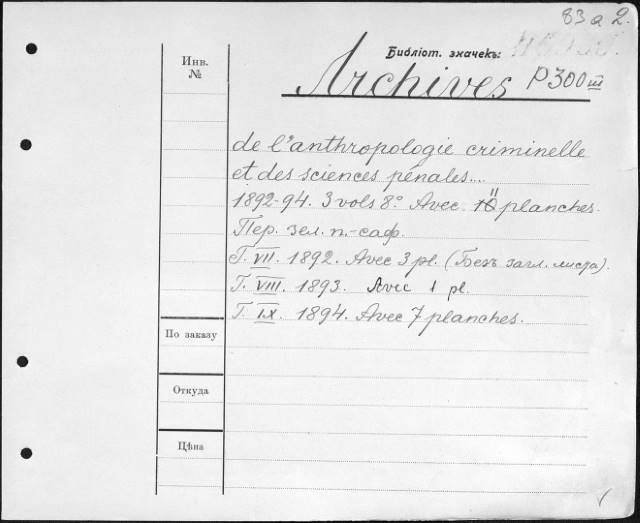 83 a 2.
Инв.
№
Библіот. значекъ:
Archives P300 III
de l'anthropologie criminelle
et des sciences pénales...
1892-94. 3 vols 8° Avec 11 planches.
Пер. зел. п.-саф.
Т. VII. 1892. Avec 3 pl. (Безъ загл. листа).
Т. VIII. 1893. Avec 1 pl.
Т. IX. 1894. Avec 7 planches.
По заказу
Откуда
Цѣна